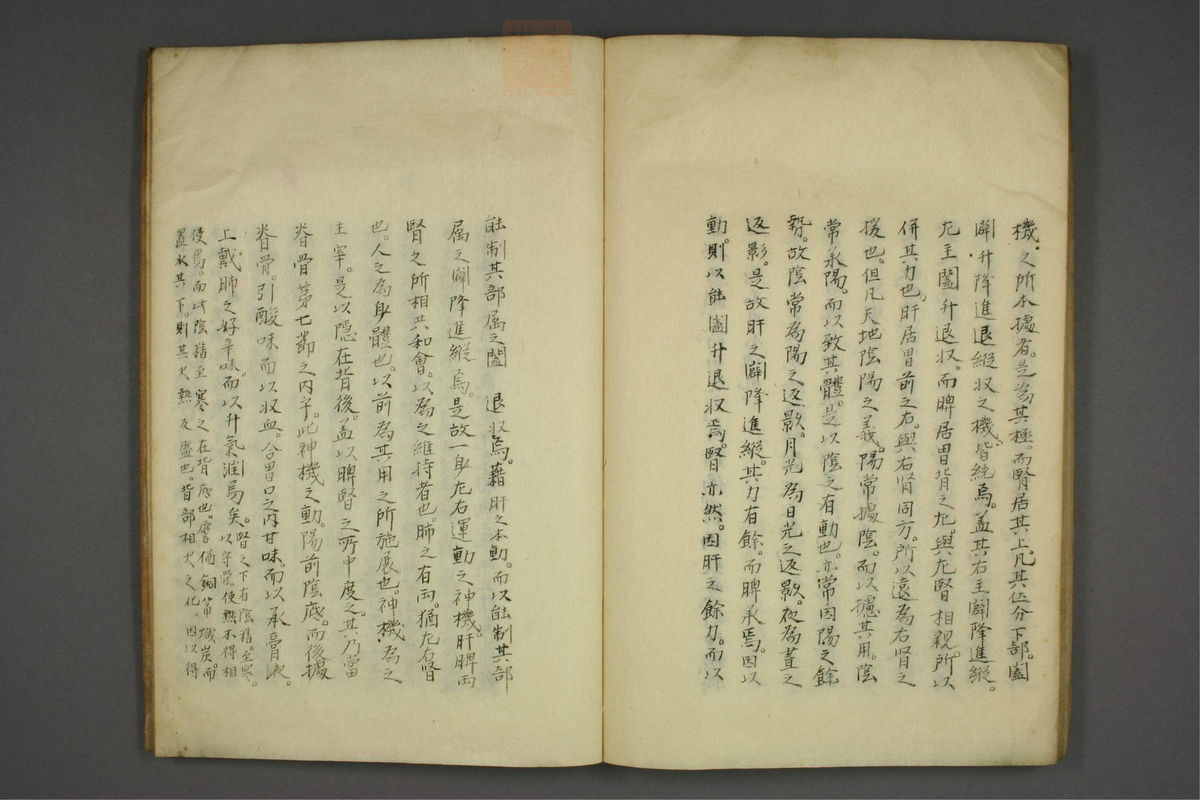 機之所本據者是為其極而腎居其上凡其位分下部闔
闢升降進退縱収之機皆統焉蓋其右主闢降進縱
尤主闔升退収而脾居胃背之尤與尤腎相親所以
併其力也肝居胃前之右與右腎同方所以遠為右腎之
援也但凡天地陰陽之義陽常據陰而以攄其用陰
常承陽而以致其體是以陰之有動也亦常因陽之餘
勢故陰常為陽之返影月光為日光之返影夜為晝之
返影是故肝之闢降進縱其力有餘而脾承焉因以
動則以能闔升退収焉腎亦然因肝之餘力而以
能制其部属之闔 退収焉藉肝之本動而以能制其部
属之闢降進縱焉是故一身尤右運動之神機肝脾両
腎之所相共和會以為之維持者也肺之有両猶尤右腎
也人之為身體也以前為其用之所施展也神機為之
主宰是以隱在背後蓋以脾腎之所中度之其乃當
脊骨第七節之内乎此神機之動陽前陰底而後據
脊骨引酸味而以収血合胃口之内甘味而以承膏液
上戴肺之好辛味而以升氣滙焉矣腎之下有陰精至寒
以守榮使熱不得相
侵焉而此陰精至寒之在背底也譬猶銅筩熾炭而
置水其下則其火熱反盛也背部相火之化因以得